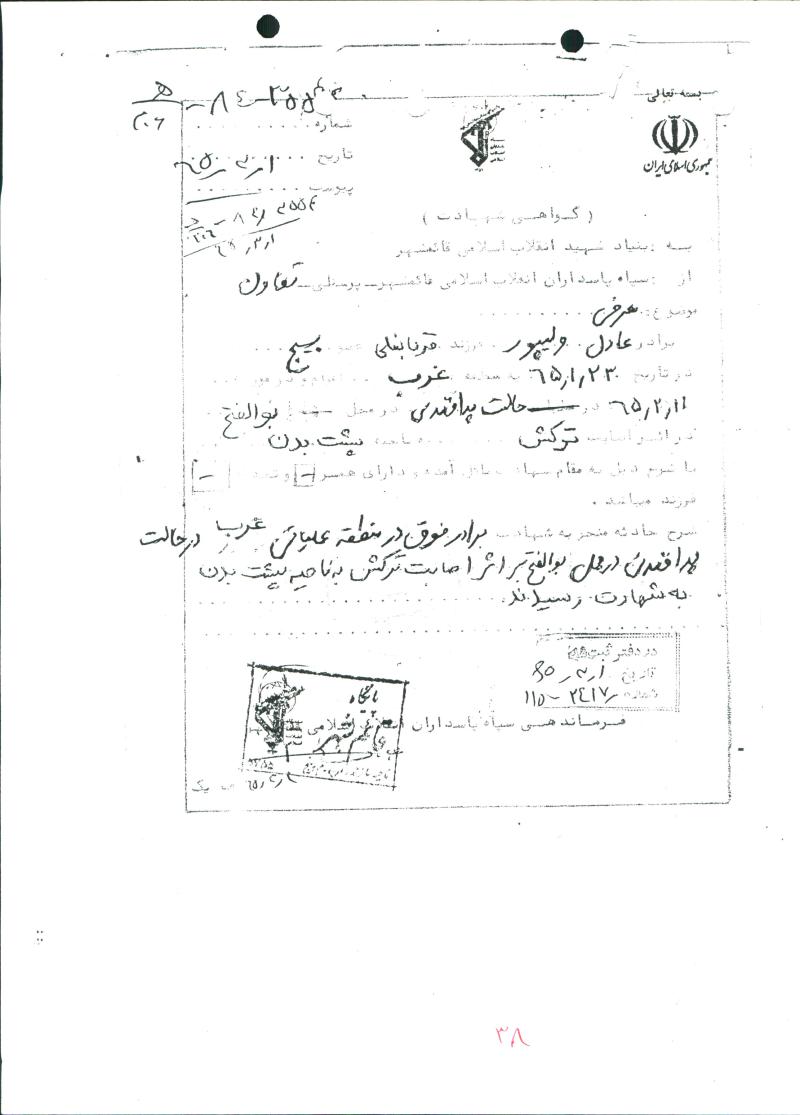 بسمه تعالی
جمهوری اسلامی ایران
شماره
تاریخ ۶۵/۳/۱
پیوست
( گواهی شهادت )
به : بنیاد شهید انقلاب اسلامی قائمشهر
از : سپاه پاسداران انقلاب اسلامی قائمشهر - پرسنلی - تعاون
موضوع: معرفی
برادر عادل ولیپور فرزند قربانعلی عضو بسیج
در تاریخ ۶۵/۱/۲۳ به منطقه غرب اعزام و در مورخه
۶۵/۲/۱۱ در حالت پدافندی در محل بوالفتح
در اثر اصابت ترکش به ناحیه پشت بدن
با شرح ذیل به مقام شهادت نائل آمده و دارای همسر - و تعداد -
فرزند میباشد .
شرح حادثه منجر به شهادت برادر فوق در منطقه عملیاتی غرب در حالت
پدافندی در محل بوالفتح بر اثر اصابت ترکش به ناحیه پشت بدن
به شهادت رسیدند.
در دفتر ثبت شد
تاریخ ۶۵/۳/۱
شماره ۱۱۵-۲۴۱۷
فرماندهی سپاه پاسداران انقلاب اسلامی
پایگاه
قائم شهر
۳۸